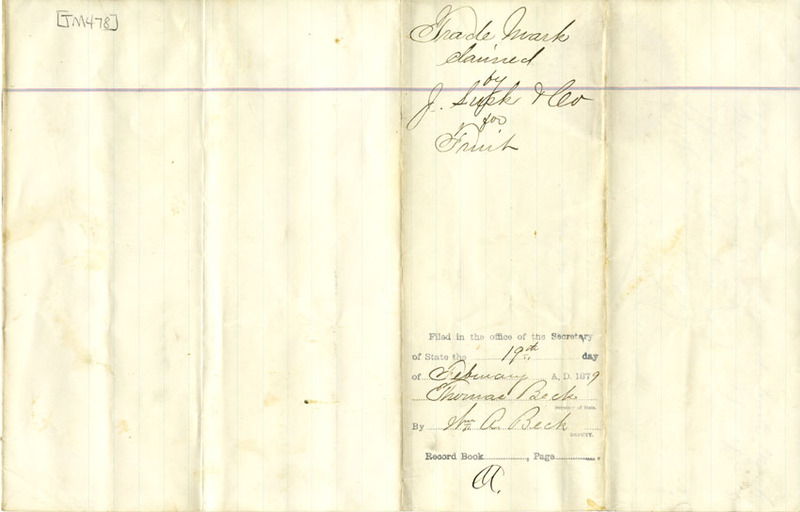 [TM478]
Trade Mark
claimed
by
J. Lusk & Co
for
Fruit
Filed in the office of the Secretary
of State the 19th day
of February A. D. 1879
Thomas Beck
Secretary of State.
By Wm A. Beck
DEPUTY.
Record Book , Page